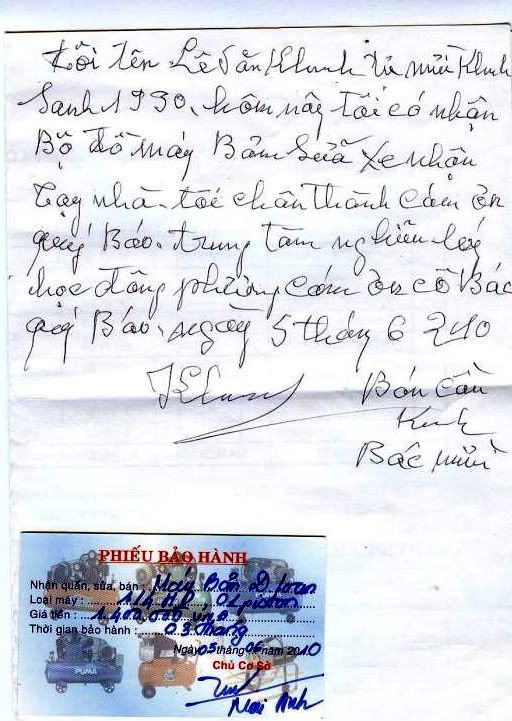 Tôi tên Lê Văn Khunh từ mủi Khuh
Sanh 1930, hôm nay tôi có nhận
Bộ đồ máy Bơm Sữa Xe nhận
Tạy nhà. toi chân thành cám ơn
quý Báo. trung tâm nghiên lý
học đông phương cám ơn cô Bác
quý Báo, ngày 5 tháng 6 2010
Bón Cần
Bác mười
PHIẾU BẢO HÀNH
Nhận quấn, sửa, bán: Máy
Loại máy: 1/4 HP, 02 piston
Giá tiền: 1.400.000 vnđ
Thời gian bảo hành: 03 tháng
Ngày 05 tháng 06 năm 2010
Chủ Cơ Sở
PUMA
Mai Anh